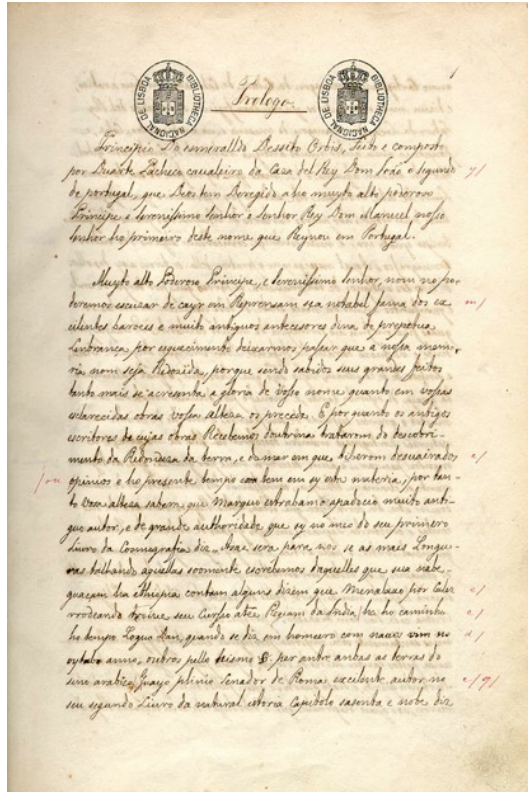 BIBLIOTHECA NACIONAL DE LISBOA
BIBLIOTHECA NACIONAL DE LISBOA
Prologo
Principio Do esmeralldo Dessito Orbis, feito e composto
por Duarte Pacheco cavaleiro da Caza del Rey Dom João o segundo
de portugal, que Deos tem Deregido a ho muyto alto poderoso
Principe e Serenissimo Senhor o Senhor Rey Dom Manuel nosso
Senhor ho primeiro deste nome que Reynou em Portugal.
Muyto alto Poderoso Principe, e Serenissimo Senhor, nom no po-
deremos escuzar de cayr em Reprensam sea notabel fama dos ex-
celentes baroes e muito antiguos antecessores dina de prepetua
Lenbrança por esquecimento deixarmos passar que a nossa memo-
ria nom seja Reduzida, porque sendo sabidos seus grandes feitos
tanto mais se acresenta a gloria de vosso nome quanto em vossas
esclarecidas obras vossa alteza os precede. E por quanto os antigos
escritores de cujas obras Recebemos doutrina trataram do descobri-
mento da Redondeza da terra, e do mar em que diserom desvairados
opinios e ho presente tempo em sy esta materia, por tan-
to vosa alteza sabera que Marquo estrabam muito anti-
guo autor, e de grande authoridade que sy no meo do seu primeiro
Livro da Cosmografia diz
aquellas soomente escrebemos daquelles que sua nabe-
guaçam ha ethiopia contem alguns dizem que Menalao por Calez
rrodeando seu Curso atee Regiam da India ho caminho
ho tempo quando se diz em homero com naaos vim no
oytabo anno, outros pello per antre ambas as terras do
seno arabico, Guayo plinio Senador de Roma excelente autor no
seu segundo Livro da natural estoria Capitolo sasenta e nobe diz